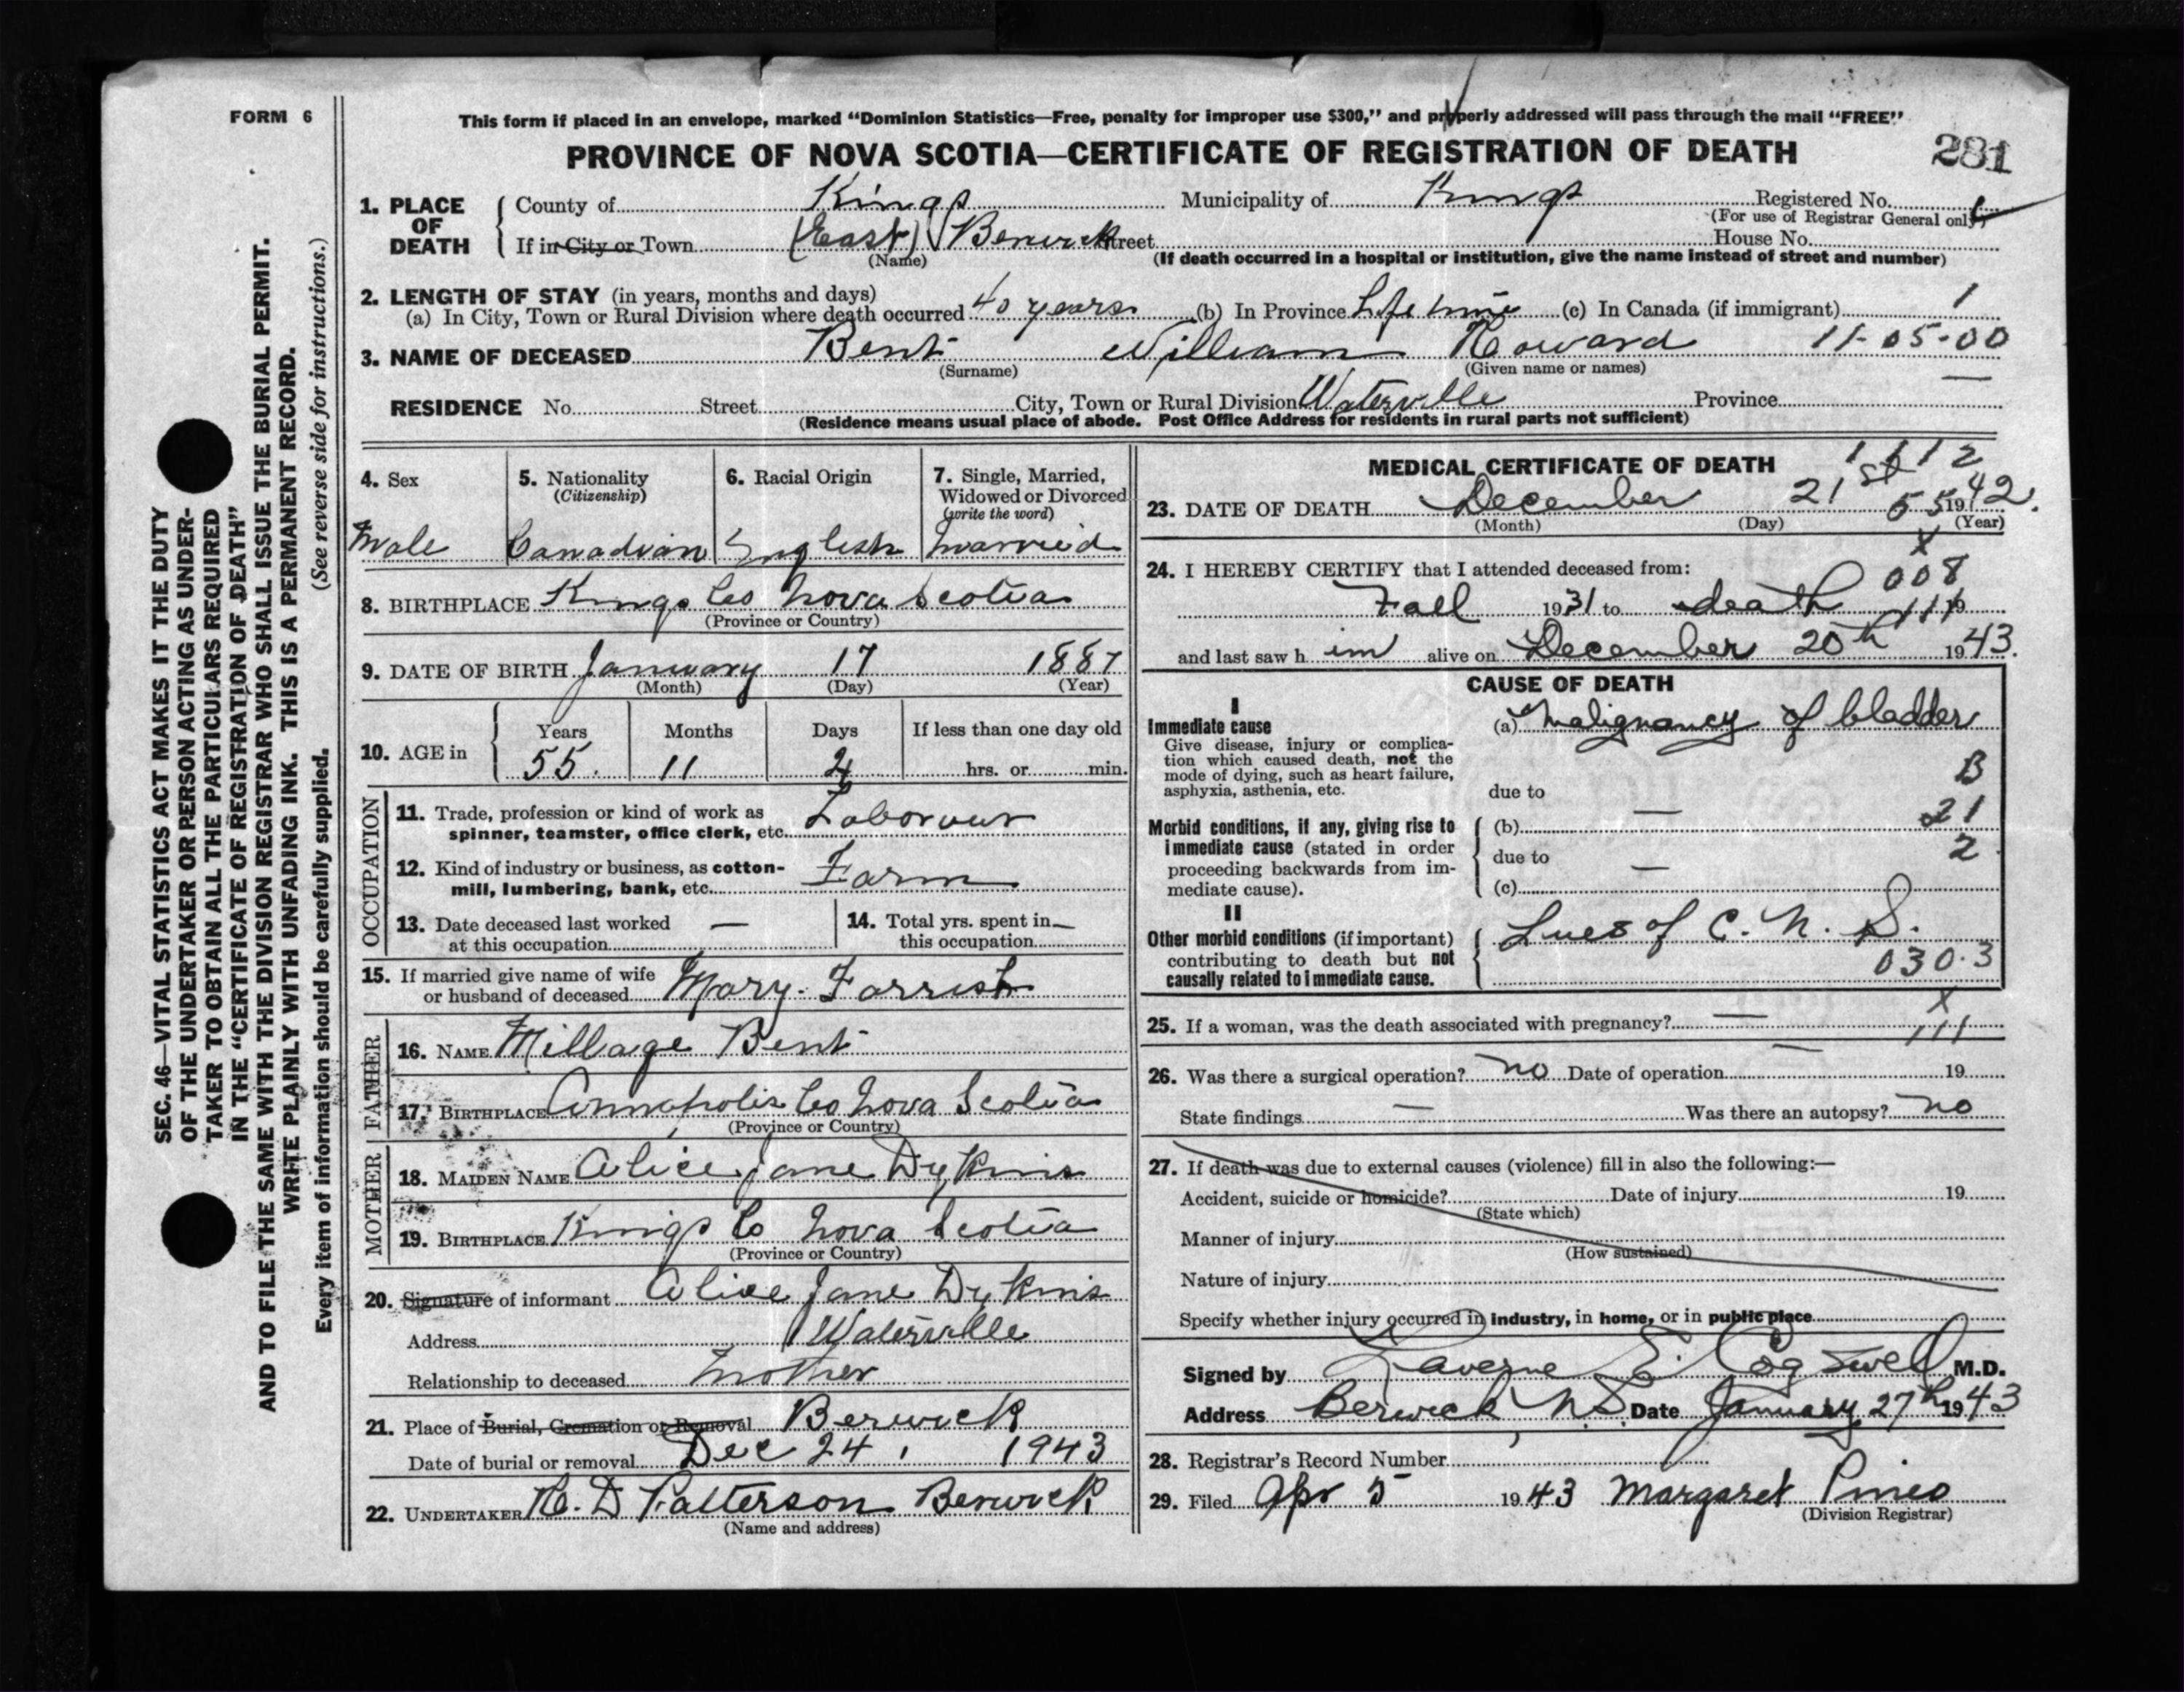 FORM 6
This form if placed in an envelope, marked "Dominion Statistics—Free, penalty for improper use $300," and properly addressed will pass through the mail "FREE"
PROVINCE OF NOVA SCOTIA—CERTIFICATE OF REGISTRATION OF DEATH
281
1. PLACE OF DEATH
County of Kings Municipality of Kings Registered No.
(For use of Registrar General only)
If in City or Town (East) Berwick Street House No.
(Name) (If death occurred in a hospital or institution, give the name instead of street and number)
2. LENGTH OF STAY (in years, months and days)
(a) In City, Town or Rural Division where death occurred 40 years (b) In Province Life time (c) In Canada (if immigrant) 1
3. NAME OF DECEASED Bent William Howard 11-05-00
(Surname) (Given name or names)
RESIDENCE No. Street City, Town or Rural Division Waterville Province —
(Residence means usual place of abode. Post Office Address for residents in rural parts not sufficient)
SEC. 46—VITAL STATISTICS ACT MAKES IT THE DUTY
OF THE UNDERTAKER OR PERSON ACTING AS UNDER-
TAKER TO OBTAIN ALL THE PARTICULARS REQUIRED
IN THE "CERTIFICATE OF REGISTRATION OF DEATH"
AND TO FILE THE SAME WITH THE DIVISION REGISTRAR WHO SHALL ISSUE THE BURIAL PERMIT.
WRITE PLAINLY WITH UNFADING INK. THIS IS A PERMANENT RECORD.
Every item of information should be carefully supplied. (See reverse side for instructions.)
4. Sex
Male
5. Nationality
(Citizenship)
Canadian
6. Racial Origin
English
7. Single, Married,
Widowed or Divorced
(write the word)
Married
8. BIRTHPLACE Kings Co Nova Scotia
(Province or Country)
9. DATE OF BIRTH January 17 1887
(Month) (Day) (Year)
10. AGE in
Years Months Days If less than one day old
55. 11 4 hrs. or min.
OCCUPATION
11. Trade, profession or kind of work as
spinner, teamster, office clerk, etc. Laborour
12. Kind of industry or business, as cotton-
mill, lumbering, bank, etc. Farm
13. Date deceased last worked
at this occupation —
14. Total yrs. spent in
this occupation —
15. If married give name of wife
or husband of deceased Mary Farrish
FATHER
16. NAME Millage Bent
17. BIRTHPLACE Annapolis Co Nova Scotia
(Province or Country)
MOTHER
18. MAIDEN NAME Alice Jane Dykins
19. BIRTHPLACE Kings Co Nova Scotia
(Province or Country)
20. Signature of informant Alice Jane Dykins
Address Waterville
Relationship to deceased Mother
21. Place of Burial, Cremation or Removal Berwick
Date of burial or removal Dec 24, 1943
22. UNDERTAKER H. D Patterson Berwick
(Name and address)
MEDICAL CERTIFICATE OF DEATH
1 1 1 2
23. DATE OF DEATH December 21st 1942.
(Month) (Day) (Year)
55
X
24. I HEREBY CERTIFY that I attended deceased from:
008
Fall 1931 to death 19
111
and last saw h im alive on December 20th 1943.
CAUSE OF DEATH
I
Immediate cause
Give disease, injury or complica-
tion which caused death, not the
mode of dying, such as heart failure,
asphyxia, asthenia, etc.
(a) Malignancy of bladder
B
due to
Morbid conditions, if any, giving rise to
immediate cause (stated in order
proceeding backwards from im-
mediate cause).
(b) — 21
due to 2
(c) —
II
Other morbid conditions (if important)
contributing to death but not
causally related to immediate cause.
Lues of C. N. S.
030.3
X
25. If a woman, was the death associated with pregnancy? — 111
26. Was there a surgical operation? no Date of operation — 19
State findings — Was there an autopsy? no
27. If death was due to external causes (violence) fill in also the following:—
Accident, suicide or homicide? Date of injury 19
(State which)
Manner of injury
(How sustained)
Nature of injury
Specify whether injury occurred in industry, in home, or in public place
Signed by Laverne E. Cogswell M.D.
Address Berwick N.S. Date January 27th 1943
28. Registrar's Record Number
29. Filed Apr 5 1943 Margaret Pineo
(Division Registrar)